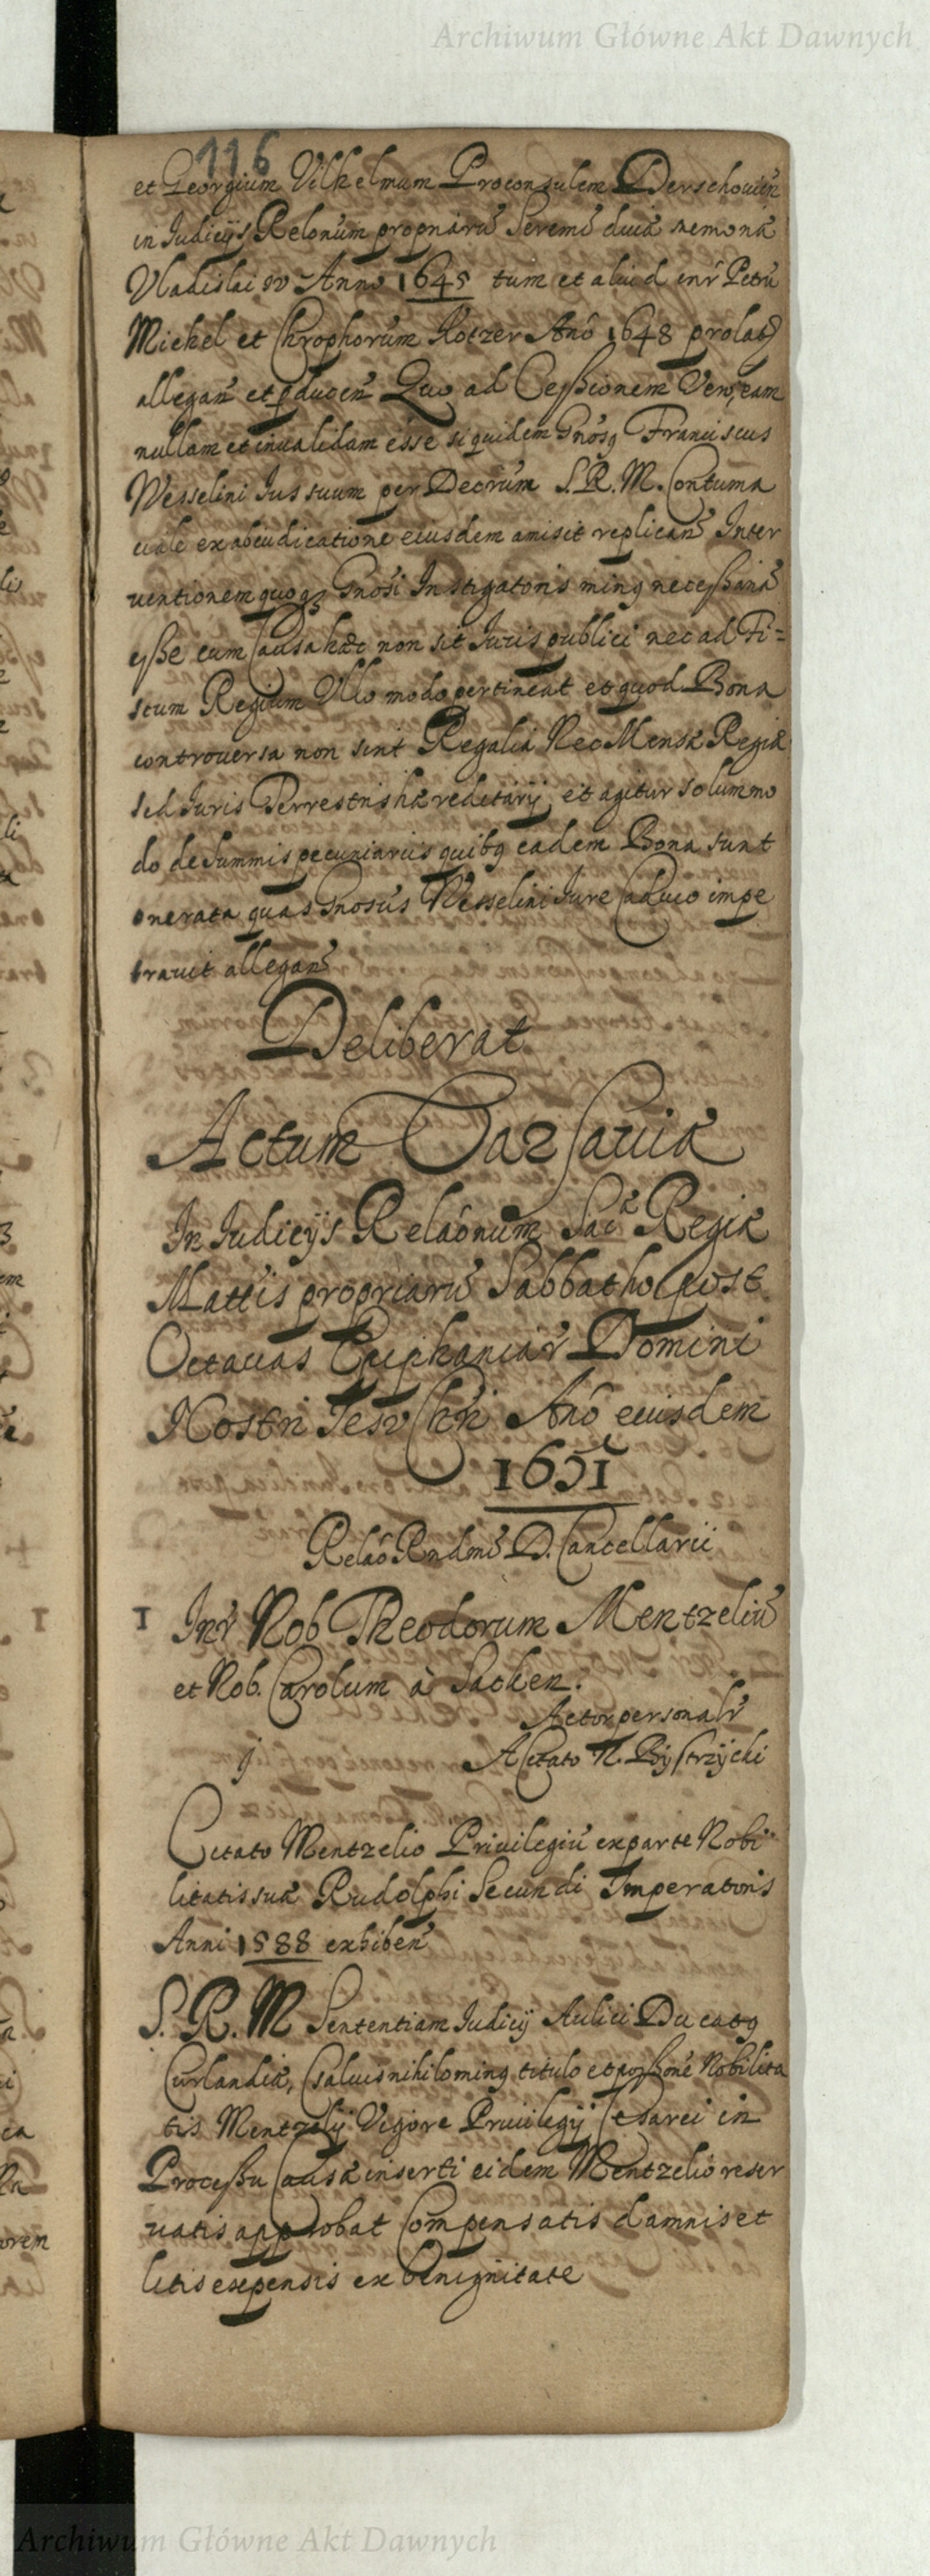 Archiwum Główne Akt Dawnych
116
et Georgium Vilhelmum Proconsulem Derschouien̄
in Judicijs Relonum propriarū Seremi diuæ memoriæ
Vladislai IV Anno 1645 tum et aliud inr̄ Petrū
Michel et Chrophorum Kotzer Anō 1648 prolatȝ
allegan̄ et ꝑducen̄ Quo ad Ceßionem Vero, eam
nullam et inualidam esse siquidem Gnosq Franciscus
Wesselini Jus suum per Decrūm S. R. M. Contuma
ciale ex abiudicatione eiusdem amisit replican̄ Inter
uentionem quoqȝ Gnosi Instigatoris minq necessariā
eße cum Causa hæc non sit Juris publici nec ad Fi=
scum Regium Vllo modo pertineat et quod Bona
controuersa non sint Regalia Nec Mensæ Regiæ
sed Juris Terrestris hæreditarij, et agitur solummo
do de summis pecuniariis quibq eadem Bona sunt
onerata quas Gnosus Wesselini Jure Caduco impe
trauit allegan̄
Deliberat
Actum Varsauiæ
In Judicijs Relaōnum Sacæ Regiæ
Mattis propriarū Sabbatho post
Octauas Epiphaniar̄ Domini
Nostri Jesv Chri Anō eiusdem
1651
Relaō Rndmi D. Cancellarii
1 Inr̄ Nob Theodorum Mentzeliū
et Nob. Carolum à Sacken.
Actor personalr̄
A Citato N. Bystrzycki
Citato Mentzelio Priuilegiū ex parte Nobi
litatis suæ Rudolphi Secundi Imperatoris
Anni 1588 exhiben̄
S. R. M Sententiam Judicij Aulici Ducatq
Curlandiæ, Saluis nihilominq titulo et poßone Nobilita
tis Mentzelij Vigore Priuilegij Cesarei in
Proceßu Causæ inserti eidem Mentzelio reser
uatis approbat Compensatis damnis et
litis expensis ex benignitate
Archiwum Główne Akt Dawnych